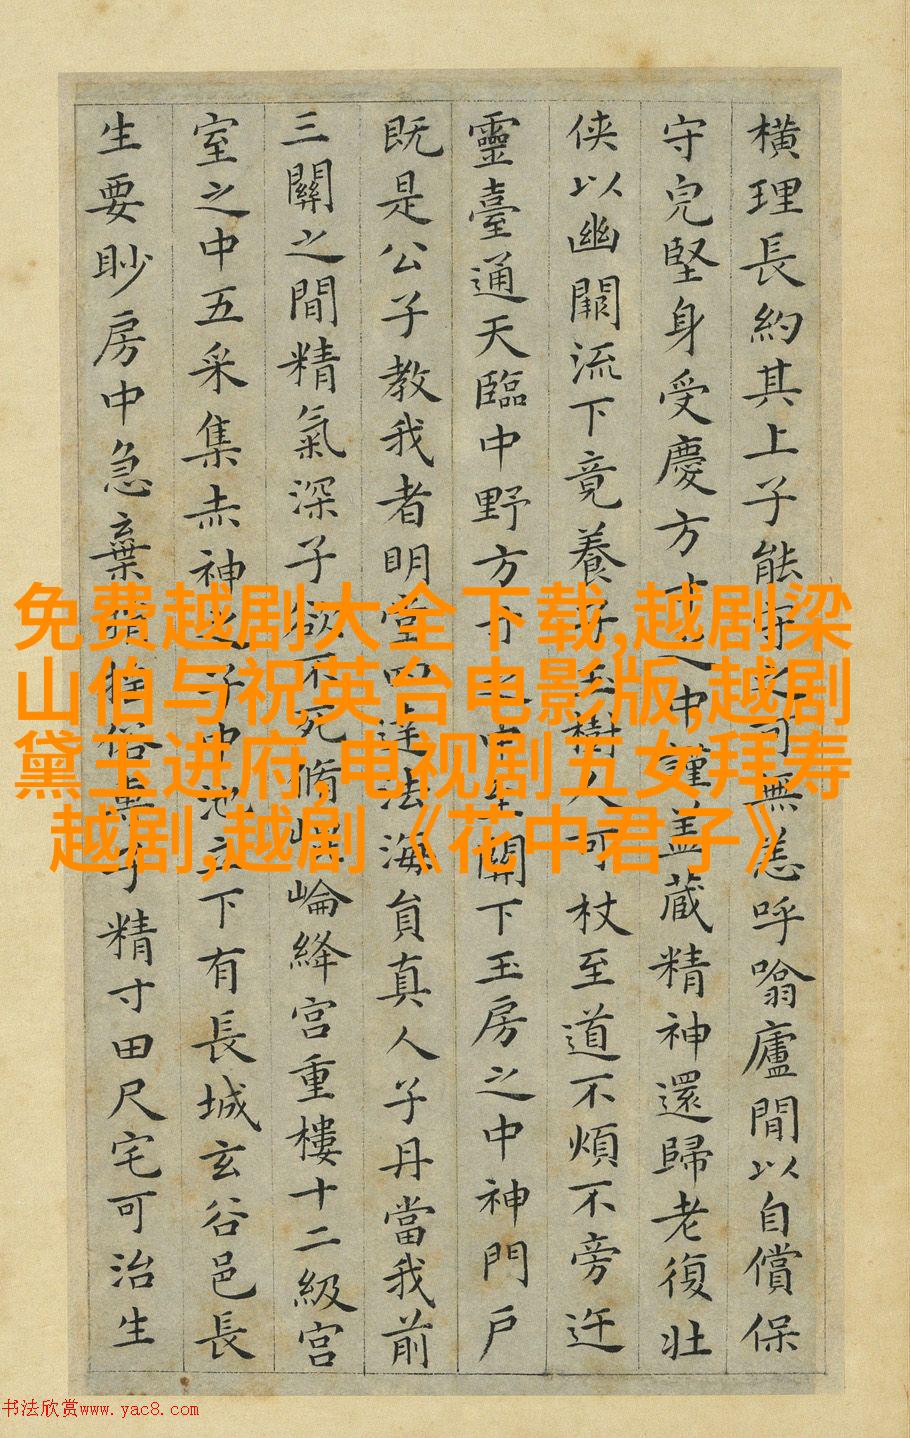 橫理長約其上子能守之可無恙呼噏廬間以自償保
守皃堅身受慶方寸之中謹盖蔵精神還歸老復壯
俠以幽闕流下竟養子玉樹人可杖至道不煩不旁迕
靈臺通天臨中野方寸之中至關下玉房之中神門戶
既是公子教我者明堂四達法海員真人子丹當我前
三關之間精氣深子欲不死脩崐崘絳宮重樓十二級宮
室之中五采集赤神之子中池立下有長城玄谷邑長
生要眇房中急棄捐俗專子精寸田尺宅可治生
免费越剧大全下载,越剧梁
山伯与祝英台电影版,越剧
黛玉进府,电视剧五女拜寿
越剧,越剧《花中君子》
书法欣赏www.yac8.com